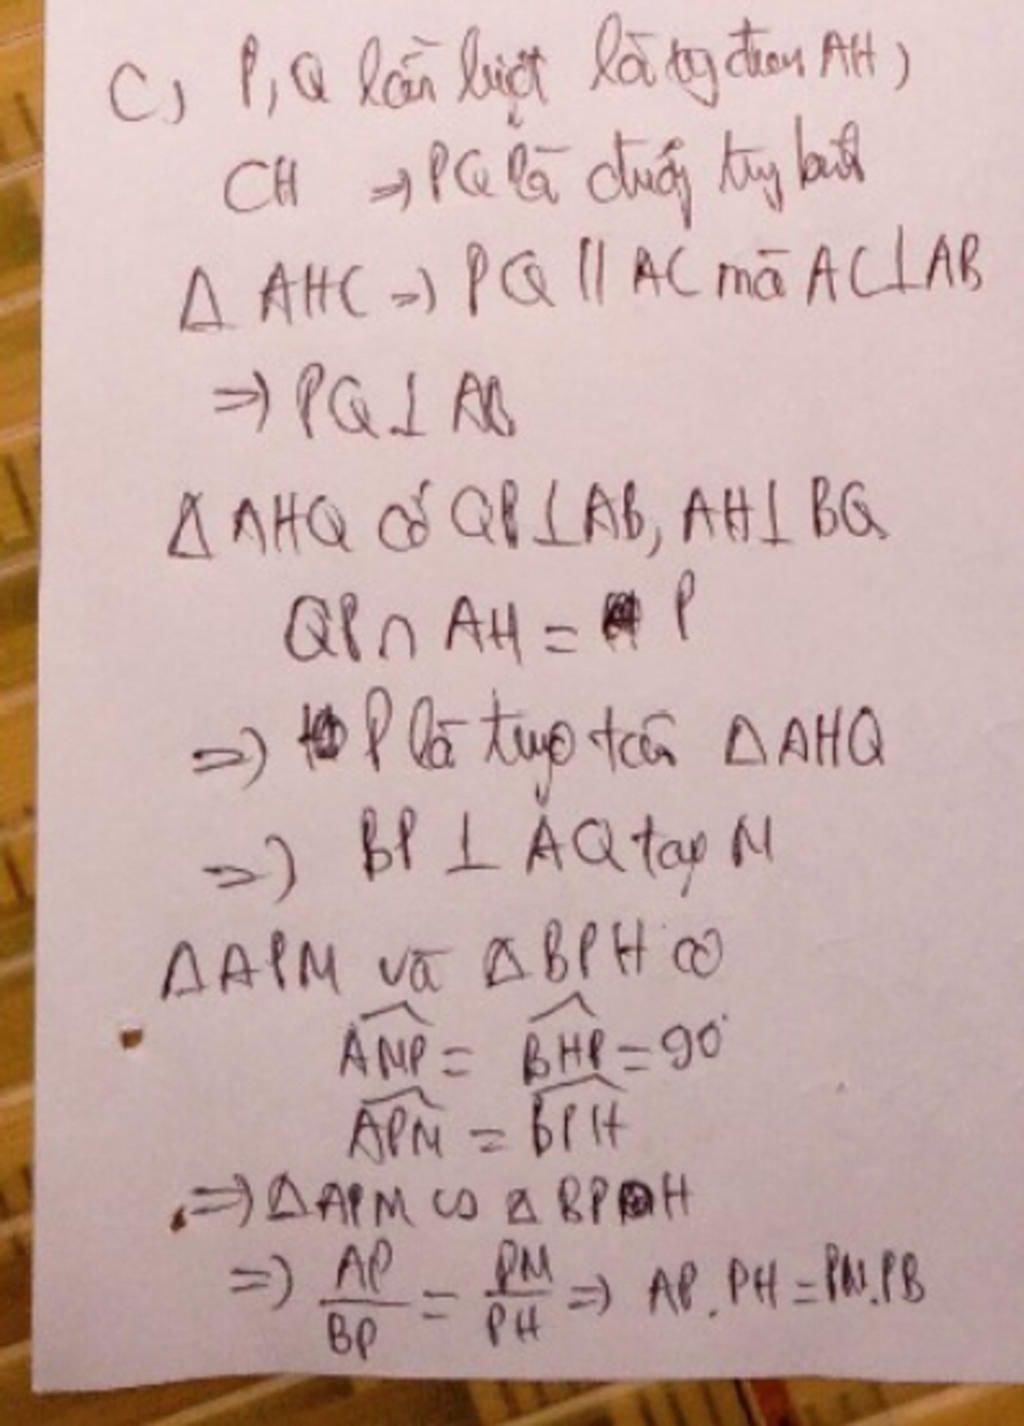 C, P, Q lần lượt là tg điểm AH,
CH => PQ là đường tg bình
Δ AHC => PQ // AC mà AC⊥AB
=> PQ ⊥ AB
Δ AHQ có QP⊥AB, AH⊥BQ
QP ∩ AH = P
=> P là trực tâm Δ AHQ
=> BP ⊥ AQ tại M
ΔAPM và ΔBPH có
\widehat{AMP} = \widehat{BHP} = 90°
\widehat{APM} = \widehat{BPH}
=> ΔAPM ∽ ΔBPH
=> \frac{AP}{BP} = \frac{PM}{PH} => AP.PH = PM.PB